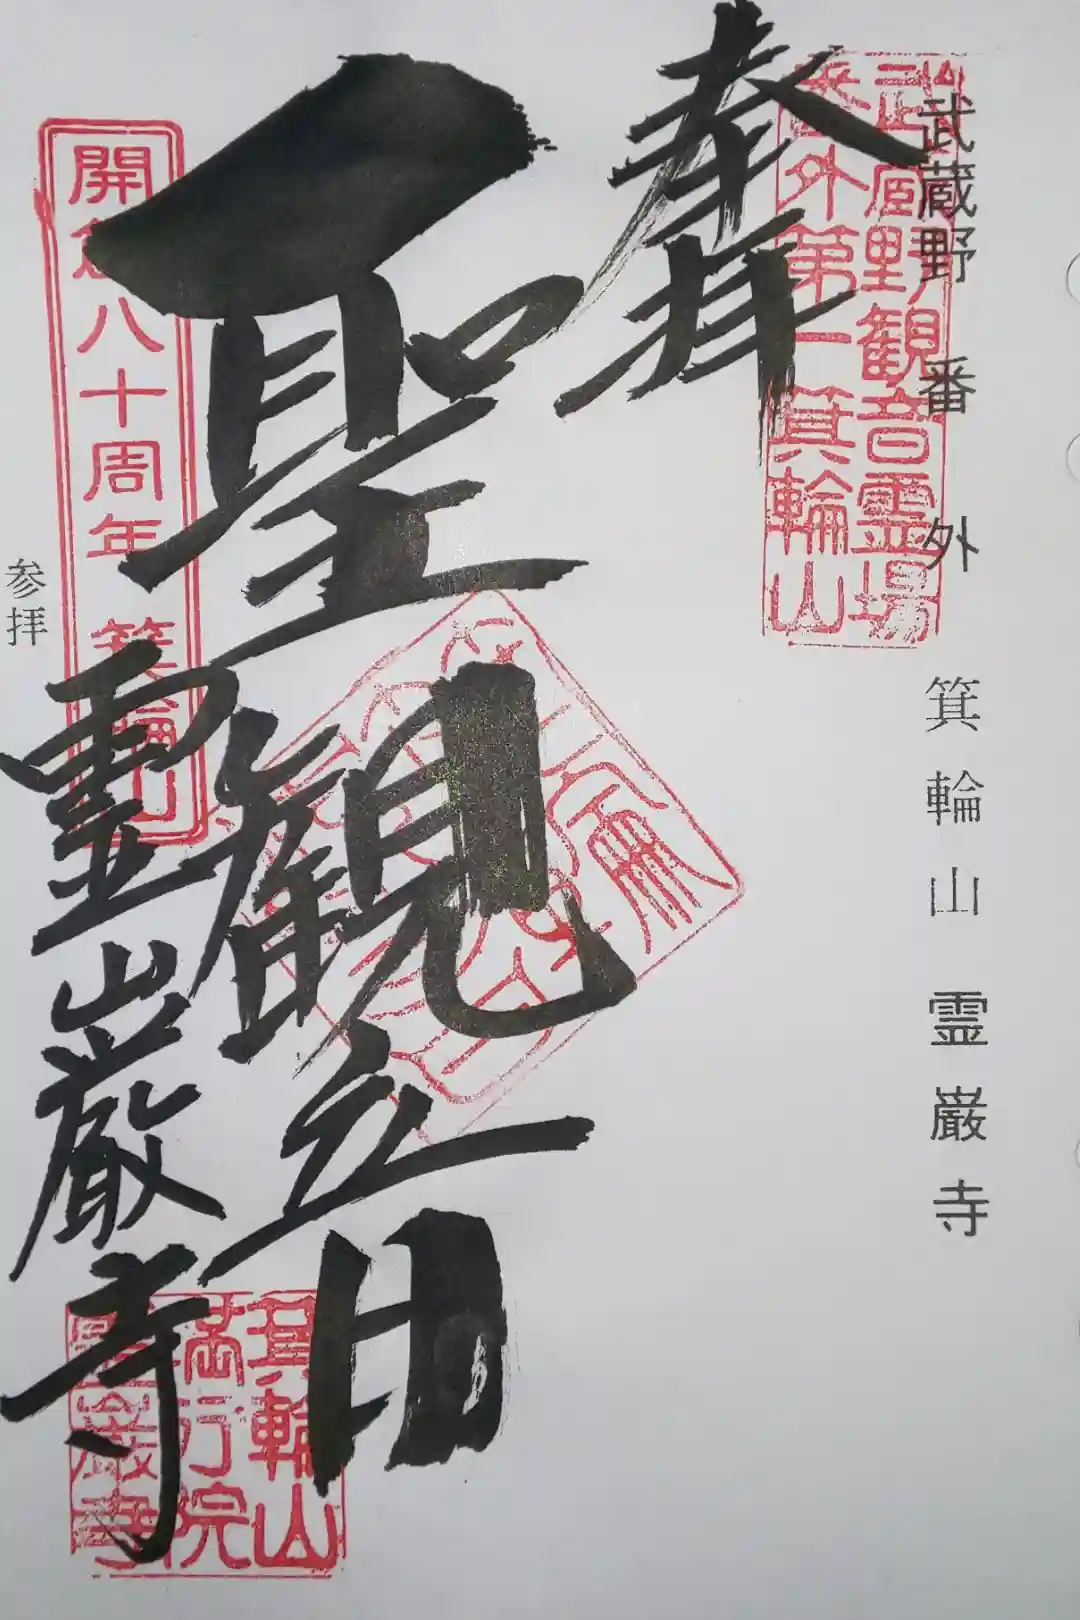 武蔵野 番 外 箕輪山 霊巌寺
武蔵野観音霊場
番外第一箕輪山
奉拝
聖観音
開創八十周年 箕輪山
霊巌寺
参拝
箕輪山
満行院
霊巌寺